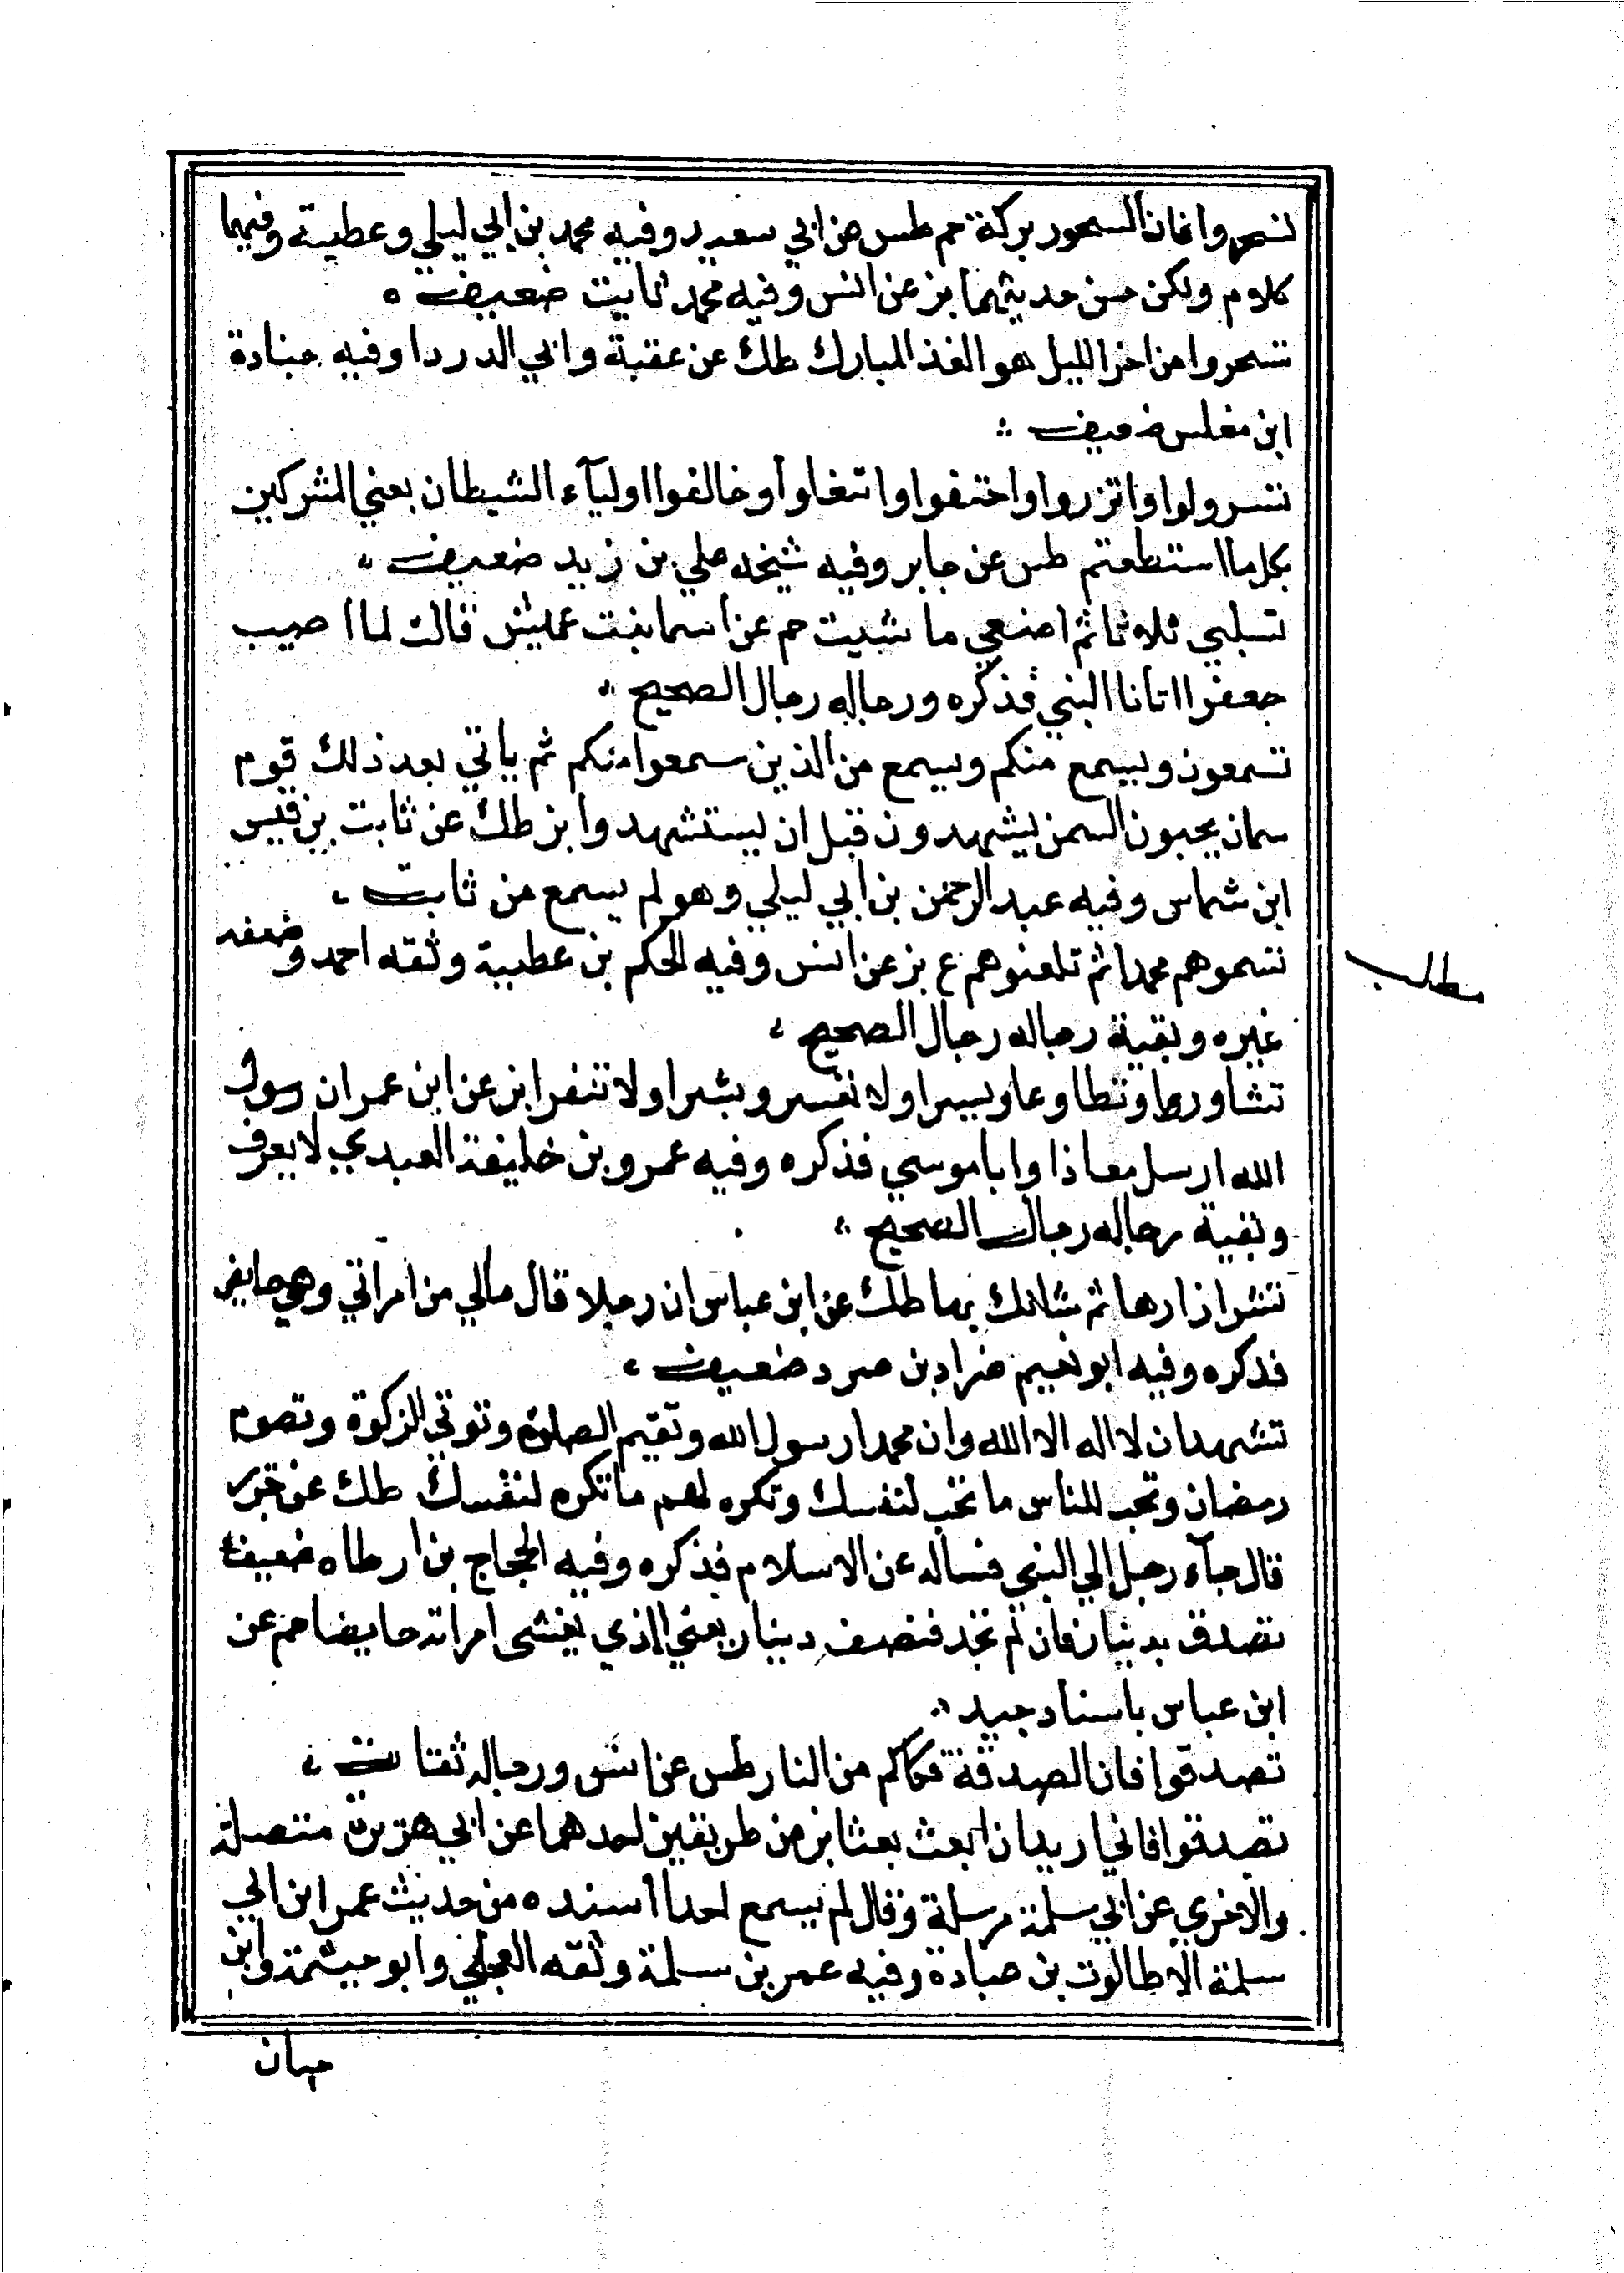 تسحروا فان السحور بركة حم طس عن ابي سعيد وفيه محمد بن ابي ليلي وعطية وفيهما
كلام ولكن حسن حديثهما بز عن انس وفيه محمد ثابت ضعيف ه
تسحروا من اخر الليل هو الغذ المبارك طك عن عقبة وابي الدردا وفيه جبنادة
ابن مغلس ضعيف
تسرولوا واتزروا واختفوا وانتغلوا وخالفوا اوليآء الشيطان يعني المشركين
بكل ما استطعتم طس عن جابر وفيه شيخه علي بن زيد ضعيف
تسلبي ثلاثا ثم اصنعي ما شيت حم عن اسما بنت عميش قالت لما اصيب
جعفر اتانا النبي فذكره ورجاله رجال الصحيح
تسمعون ويسمع منكم ويسمع من الذين سمعوا منكم ثم ياتي بعد ذلك قوم
سمان يحبون السمن يشهدون قبل ان يستشهدوا بز طك عن ثابت بن قيس
ابن شماس وفيه عبد الرحمن بن ابي ليلي وهو لم يسمع من ثابت
تسموهم محمدا ثم تلعنوهم ع بز عن انس وفيه الحكم بن عطية وثقه احمد وضعفه
مطلب
غيره وبقية رجاله رجال الصحيح
تشاورا وتطاوعا ويسرا ولا تعسر وبشرا ولا تنفرا بز عن ابن عمر ان رسول
الله ارسل معاذا وابا موسي فذكره وفيه عمرو بن خليفة العبدي لا يعرف
وبقية رجاله رجال الصحيح
تشد ازارها ثم شانك بها طك عن ابن عباس ان رجلا قال مالي من امراتي وهي حايض
فذكره وفيه ابو نعيم ضرار بن صرد ضعيف
تشهد ان لا اله الا الله وان محمدا رسول الله وتقيم الصلوة وتوتي الزكوة وتصوم
رمضان وتحب للناس ما تحب لنفسك وتكره لهم ما تكره لنفسك طك عن جرير
قال جآء رجل الي النبي فساله عن الاسلام فذكره وفيه الحجاج بن ارطاه ضعيف
تصدق بدينار فان لم تجد فنصف دينار يعني الذي يغشى امراته حايضا حم عن
ابن عباس باسناد جيد
تصدقوا فان الصدقة فكاككم من النار طس عن انس ورجاله ثقات
تصدقوا فاني اريد ان ابعث بعثا بز من طريقين احدهما عن ابي هريرة متصلة
والاخري عن ابي سلمة مرسلة وقال لم يسمع احدا اسنده من حديث عمر ابن ابي
سلمة الا طالوت بن عبادة وفيه عمر بن سلمة وثقه العجلي وابو خيثمة وابن
حبان